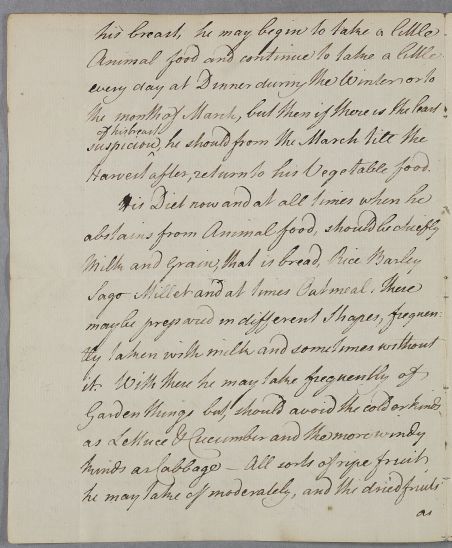 his breast, he may begin to take a little
Animal food and continue to take a little
every day at Dinner during the Winter or to
the month of March, but then if there is the least
of his breast
suspicion, he should from the March till the
Harvest after, return to his Vegetable food.
His Diet now and at all times when he
abstains from Animal food, should be chiefly
Milk and Grain, that is bread, Rice Barley
Sago Millet and at times Oatmeal. These
may be prepared in different Shapes, frequen-
tly taken with milk and sometimes without
it. With these he may take frequently of
Garden things but, should avoid the colder kinds
as Lettuce & Cucumber and the more windy
kinds as Cabbage – All sorts of ripe fruit
he may take off moderately, and the dried fruits
as